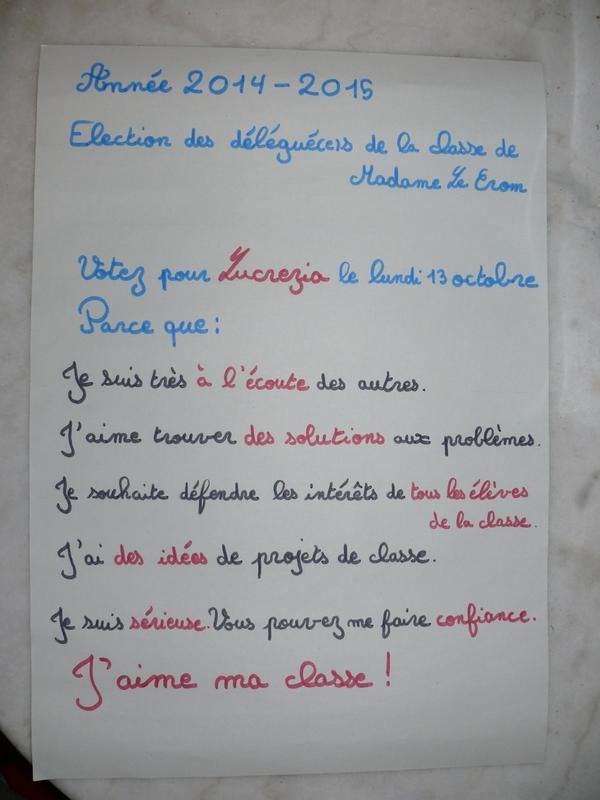 Année 2014-2015
Election des délégué(e)s de la classe de
Madame Le Crom
Votez pour Lucrezia le lundi 13 octobre
Parce que :
Je suis très à l'écoute des autres.
J'aime trouver des solutions aux problèmes.
Je souhaite défendre les intérêts de tous les élèves
de la classe.
J'ai des idées de projets de classe.
Je suis sérieuse. Vous pouvez me faire confiance.
J'aime ma classe !